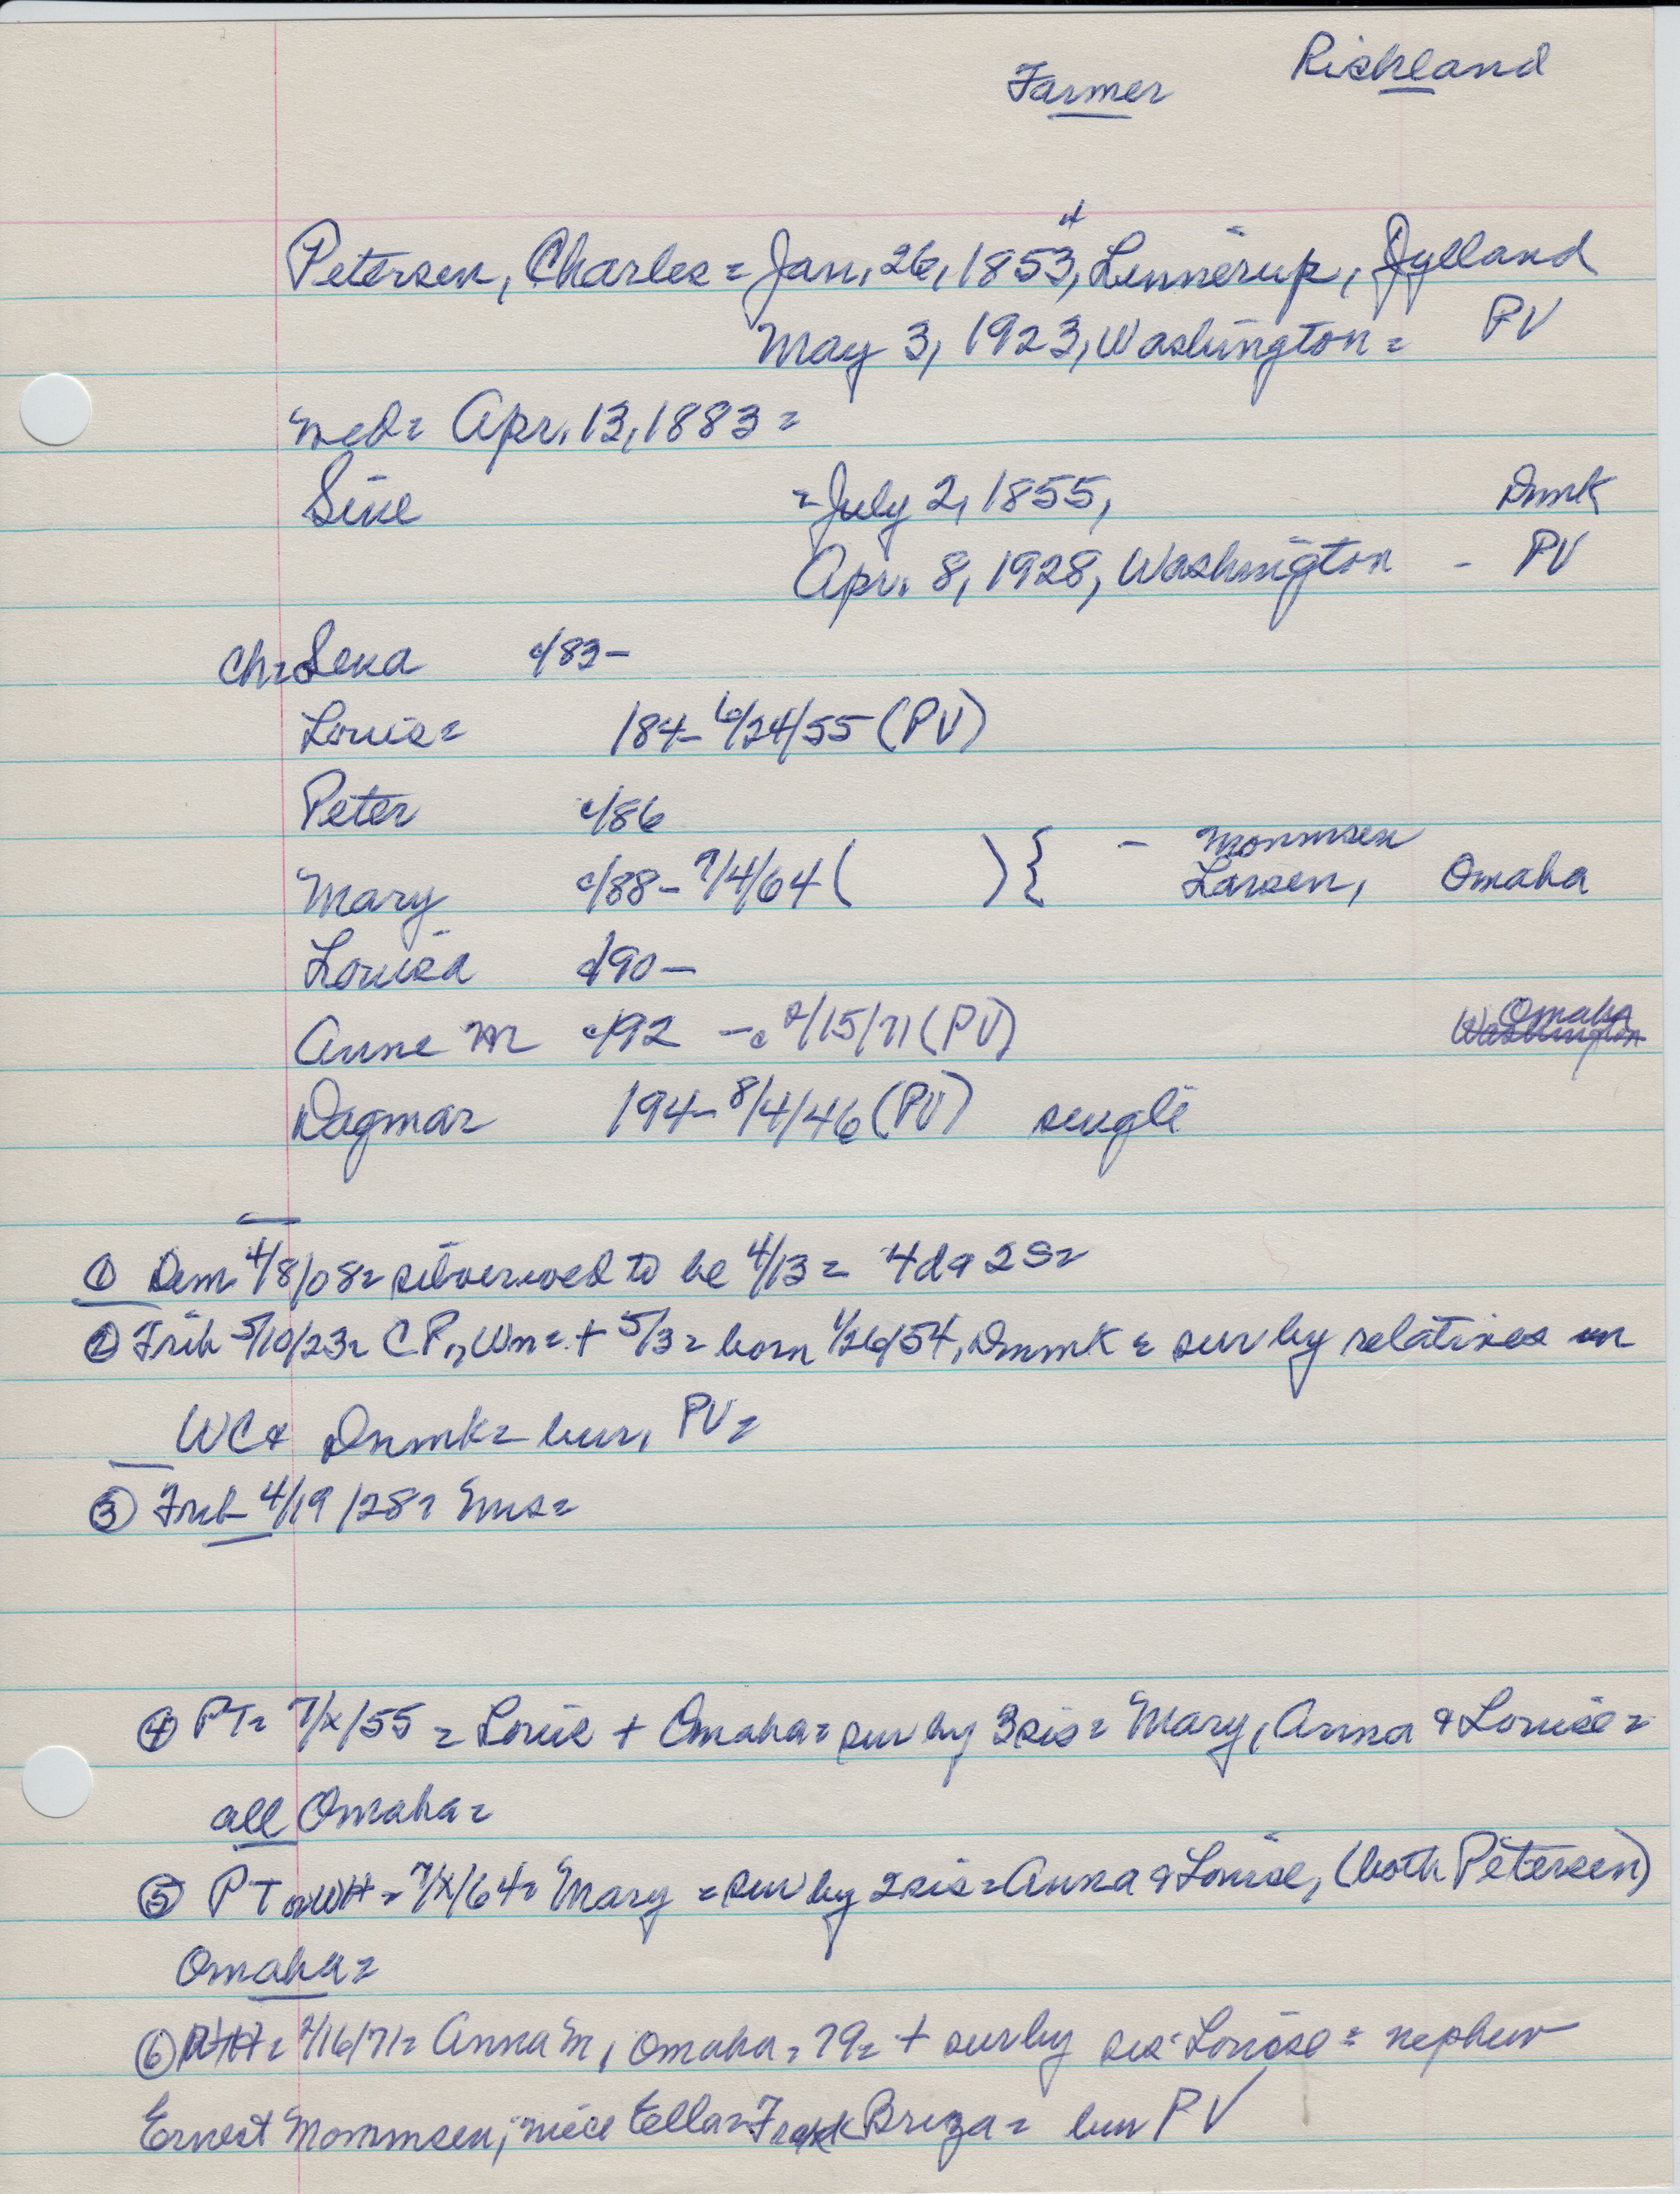 Farmer Richland
4
Petersen, Charles = Jan. 26, 1853, Linnerup, Jylland
May 3, 1923, Washington = PV
med = Apr. 13, 1883 =
Sine = July 2, 1855, Dnmk
Apr. 8, 1928, Washington - PV
Ch = Sena c/83 -
Louis = /84 - 6/24/55 (PV)
Peter c/86
Mommsen
Mary c/88 - 7/4/64 ( ) { - Larsen, Omaha
Louisa c/90 -
Omaha
Anne M c/92 - 2/15/71 (PV) Washington
Dagmar /94 - 8/4/46 (PV) single
① Dem 4/8/08 = silverwed to be 4/13 = 4 da 2 S =
② Trib 5/10/23 = C P, Wn = + 5/3 = born 1/26/54, Dnmk = sur by relatives in
WC & Dnmk = bur, PV =
③ Trib 4/19/28 = Mrs =
④ PT = 7/x/55 = Louie + Omaha = sur by 3 sis = Mary, Anna & Louise =
all Omaha =
⑤ PT or WH = 7/x/64 = Mary = sur by 2 sis = Anna & Louise, (both Petersen)
Omaha =
⑥ = 2/16/71 = Anna M, Omaha, 79 = + sur by sis Louise = nephew
Ernest Mommsen; niece Ella = Frank Briza = bur PV